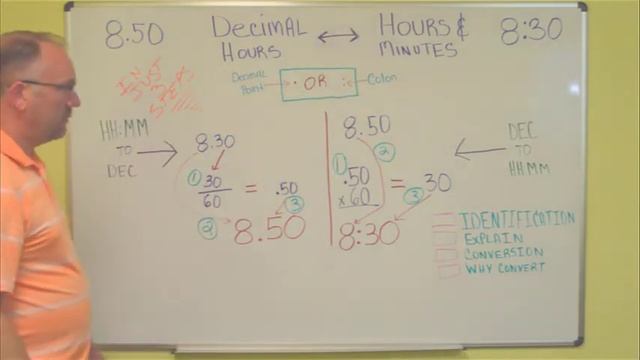 8.50 DECIMAL HOURS ↔ HOURS & MINUTES 8:30
DECIMAL POINT → . OR : ← COLON
HH:MM TO DEC →
8.30
① 30/60 = .50 ③
② 8.50
8.50
②
① .50 x 60 = 30
③
8:30
← DEC TO HH:MM
IDENTIFICATION
EXPLAIN
CONVERSION
WHY CONVERT